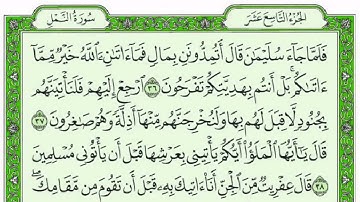 الجزء التاسع عشر سورة النمل
فَلَمَّا جَآءَ سُلَيْمَٰنَ قَالَ أَتُمِدُّونَنِ بِمَالٍ فَمَآ ءَاتَىٰنِۦَ ٱللَّهُ خَيْرٌ مِّمَّآ
ءَاتَىٰكُم بَلْ أَنتُم بِهَدِيَّتِكُمْ تَفْرَحُونَ ٣٦ ٱرْجِعْ إِلَيْهِمْ فَلَنَأْتِيَنَّهُم
بِجُنُودٍ لَّا قِبَلَ لَهُم بِهَا وَلَنُخْرِجَنَّهُم مِّنْهَآ أَذِلَّةً وَهُمْ صَٰغِرُونَ ٣٧
قَالَ يَٰٓأَيُّهَا ٱلْمَلَؤُا۟ أَيُّكُمْ يَأْتِينِى بِعَرْشِهَا قَبْلَ أَن يَأْتُونِى مُسْلِمِينَ
٣٨ قَالَ عِفْرِيتٌ مِّنَ ٱلْجِنِّ أَنَا۠ ءَاتِيكَ بِهِۦ قَبْلَ أَن تَقُومَ مِن مَّقَامِكَ ۖ